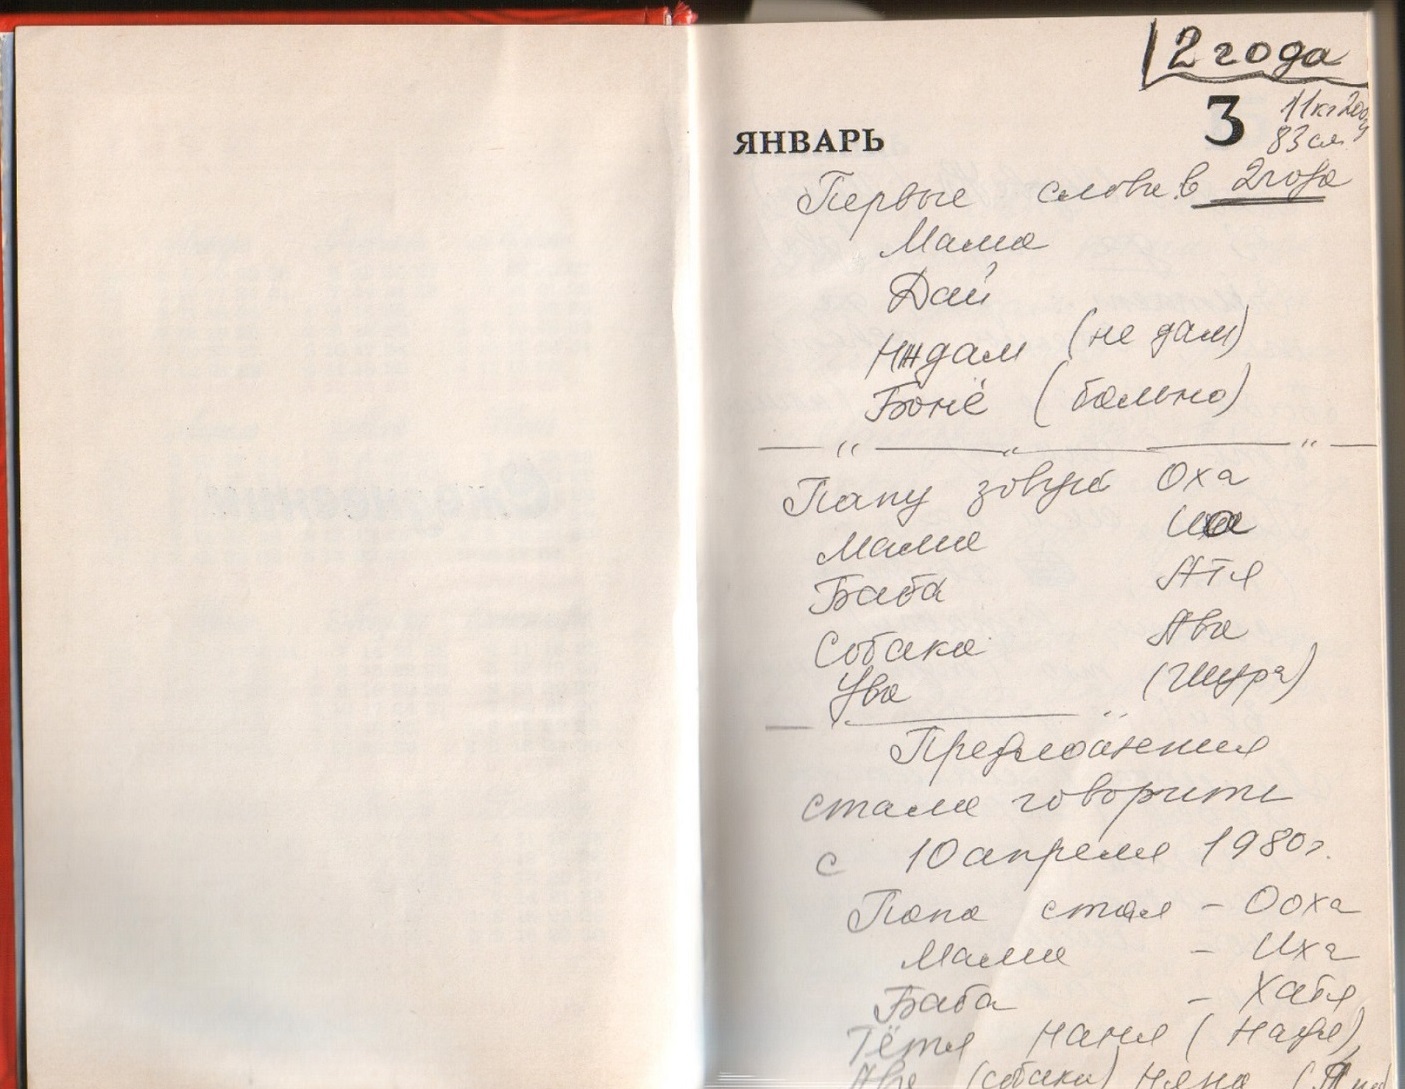 2 года
ЯНВАРЬ 3 11кг 200
83 см
Первые слова в 2 года
Мама
Дай
Нждам (не дам)
Бонё (больно)
Папу зовут Оха
Мама
Баба Атя
Собака Ава
Ува (Шура)
Предложения
стала говорить
с 10 апреля 1980г.
Папа стал - Ооха
Мама - Иха
Баба - Хатя
Тётя Наня (Надя)
Ава (собака) Няня